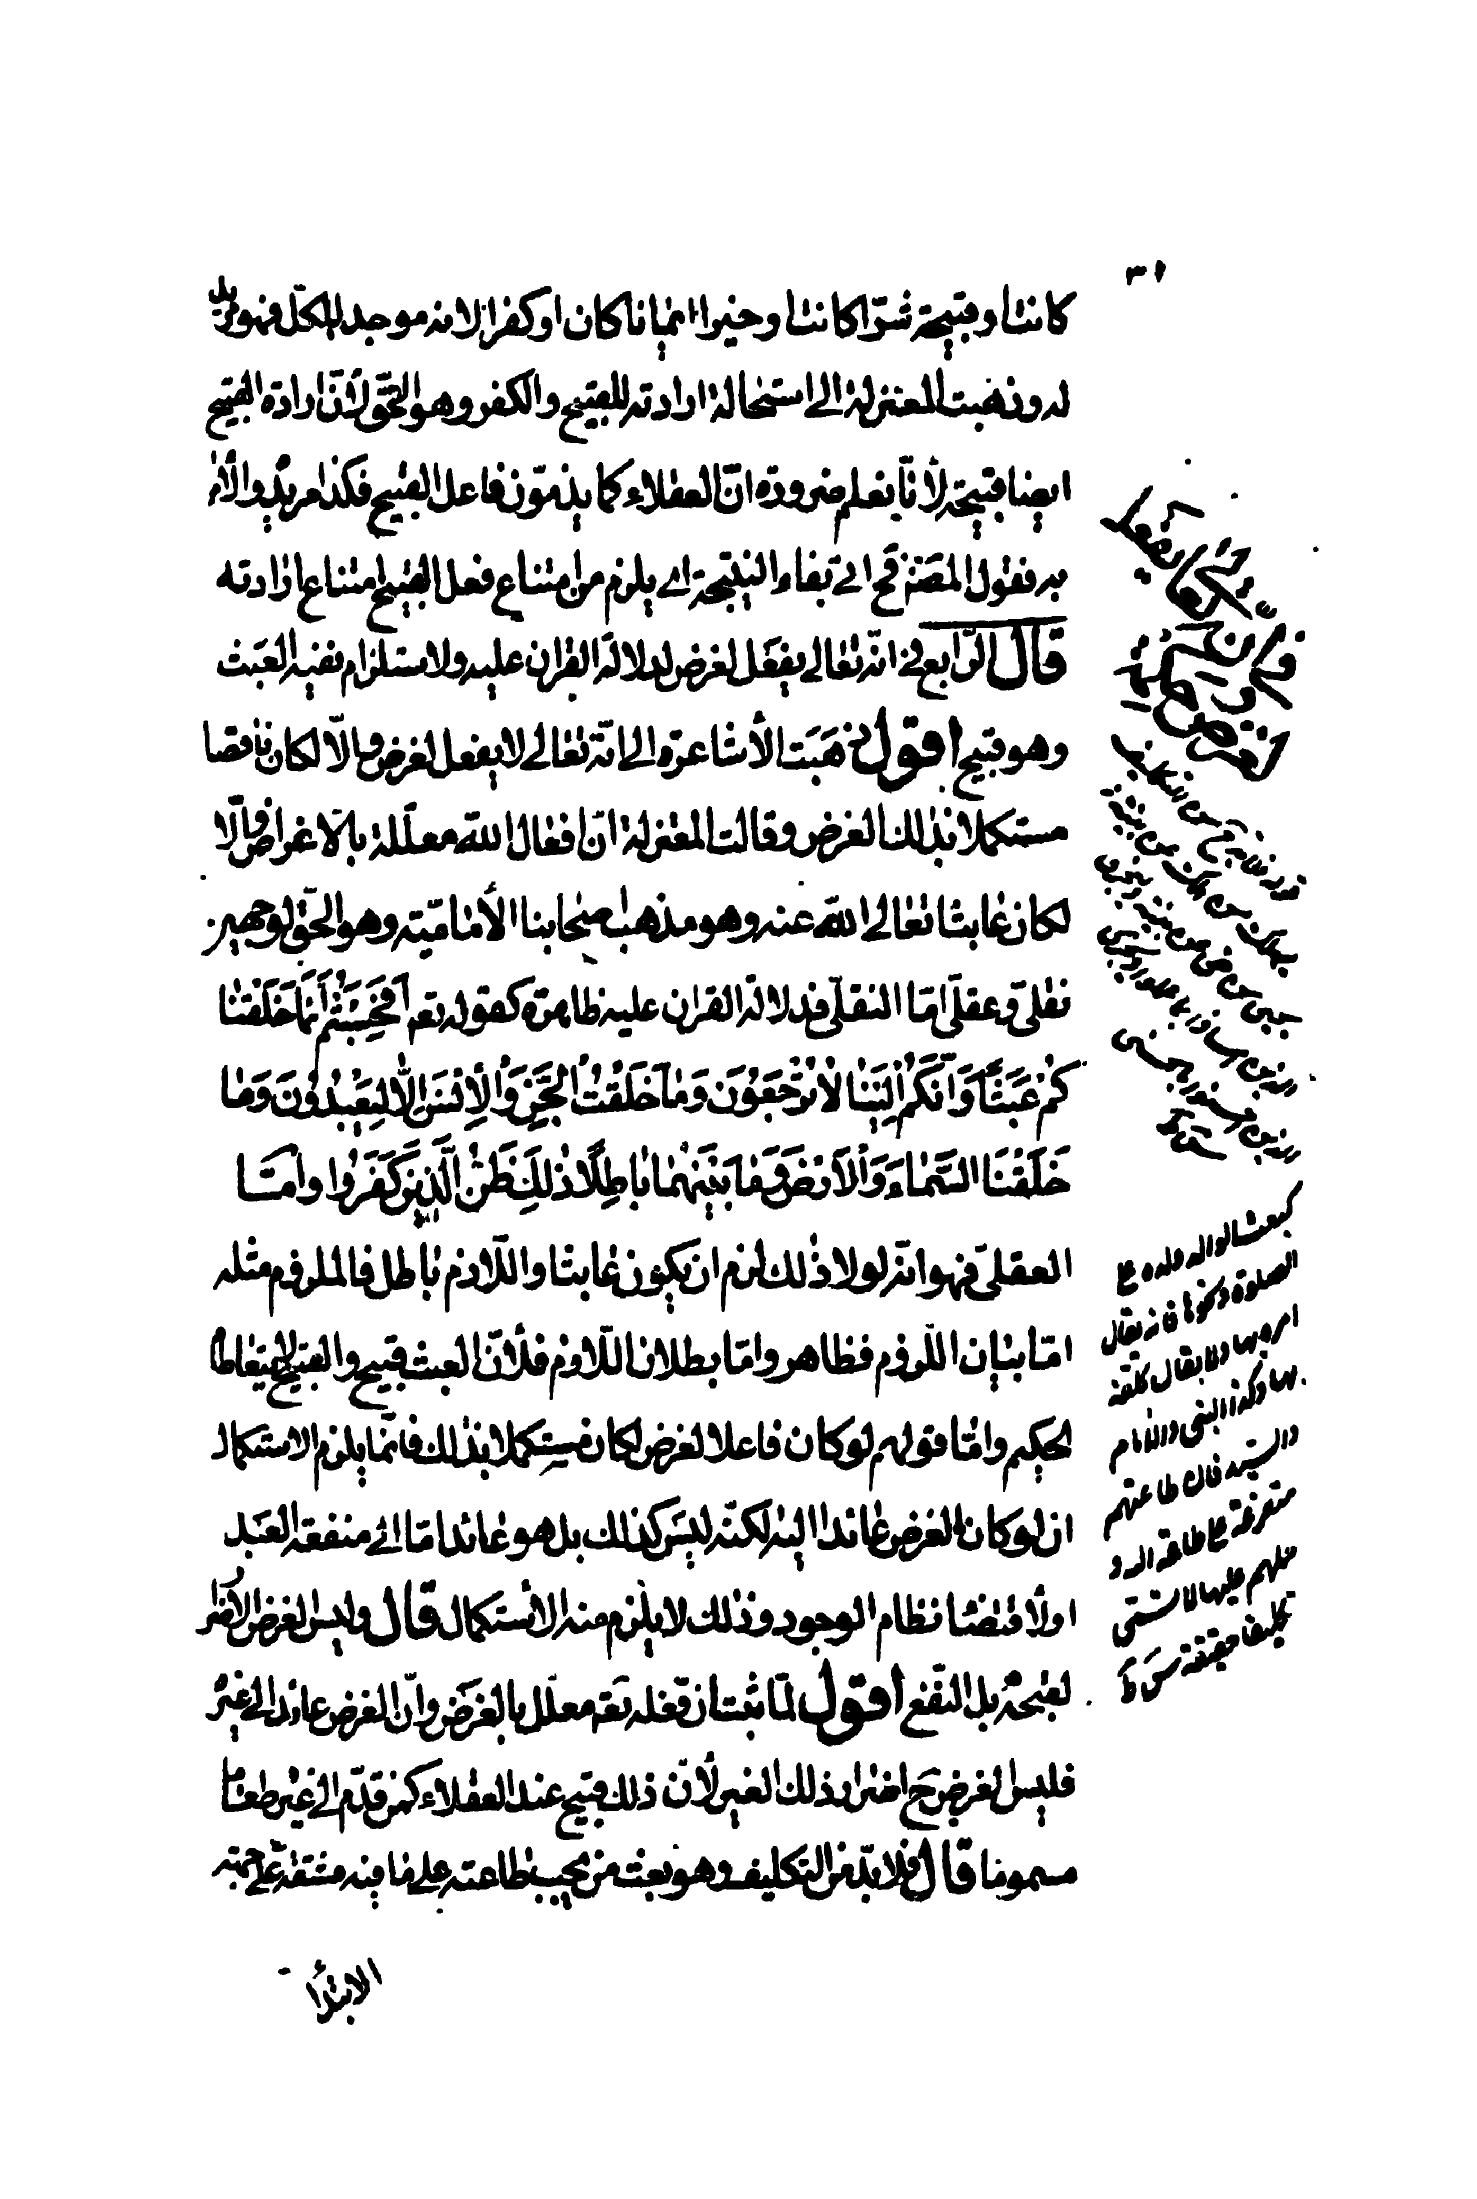 كانت او قبيحة شرّا كانت او خيرا ايمانا كان او كفرا لانه موجد للكلّ فهو مريد
له وذهبت المعتزلة الى استحالة ارادته للقبيح والكفر وهو الحقّ لأنّ ارادة القبيح
ايضا قبيحة لأنّا نعلم ضرورة انّ العقلاء كما يذمّون فاعل القبيح فكذا مريده والأمر
به فقول المصنف فح اي بقاء النتيجة اي يلزم من امتناع فعل القبيح امتناع ارادته
قال الرّابع في انّه تعالى يفعل لغرض لدلالة القران عليه ولاستلزام نفيه العبث
وهو قبيح اقول ذهبت الأشاعرة الى انّه تعالى لا يفعل لغرض والّا لكان ناقصا
مستكملا بذلك الغرض وقالت المعتزلة انّ افعال اللّه معلّلة بالاغراض والّا
لكان عابثا تعالى اللّه عنه وهو مذهب اصحابنا الأماميّة وهو الحقّ لوجهين
نقليّ وعقليّ امّا النقليّ فدلالة القران عليه ظاهرة كقوله تعم أَفَحَسِبْتُم أَنَّمَا خَلَقْنَا
كُمْ عَبَثًا وَأَنَّكُمْ إِلَيْنَا لَا تُرْجَعُوَن وَمَا خَلَقْتُ الْجِنَّ وَالْأِنْسَ إِلَّا لِيَعْبُدُونَ وَمَا
خَلَقْنَا السَّمَاءَ وَالْأَرْضَ وَمَا بَيْنَهُمَا بَاطِلًا ذٰلِكَ ظَنُّ الَّذِينَ كَفَرُوا وامّا
العقليّ فهو انّه لولا ذلك لزم ان يكون عابثا واللّازم باطل فالملزوم مثله
امّا بيان اللّزوم فظاهر وامّا بطلان اللّازم فلأنّ العبث قبيح والقبيح لا يتعاطاه
الحكيم وامّا قولهم لو كان فاعلا لغرض لكان مستكملا بذلك فانّما يلزم الاستكمال
ان لو كان الغرض عائدا اليه لكنّه ليس كذلك بل هو عائد امّا الى منفعة العبد
او لأقتضاء نظام الوجود وذلك لا يلزم منه الأستكمال قال وليس الغرض الاضرار
لقبحه بل النّفع اقول لمّا ثبت ان فعله تعم معلّل بالغرض وانّ الغرض عائد الى غيره
فليس الغرض ح اضرار ذلك الغير لأنّ ذلك قبيح عند العقلاء كمن قدّم الى غيره طعاما
مسموما قال فلا بدّ من التكليف وهو بعث من يجب طاعته على ما فيه مشقّة على جهة
الابتداء
كبعث الوالد ولده على
الصلوة ونحوها فانه يقال
امره بها ولا يقال كلّفه
بها وكذا النبي والامام
والسيّد فان طاعتهم
متفرعة على طاعة الله و
مثلهم عليها لا تسمّى
تكليفا حقيقة